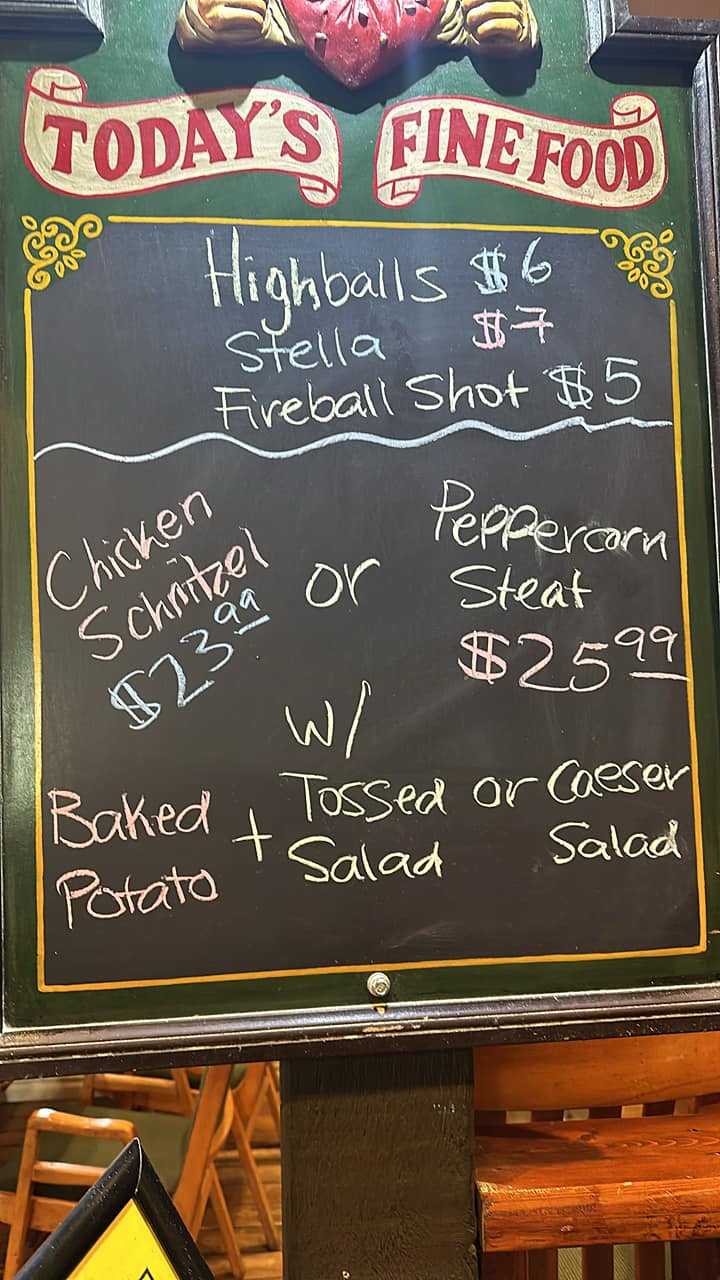 TODAY'S FINE FOOD
Highballs $6
Stella $7
Fireball Shot $5
Chicken
Schnitzel
$23.99
or
Peppercorn
Steak
$25.99
W/
Baked
Potato
+
Tossed
Salad
or
Caeser
Salad